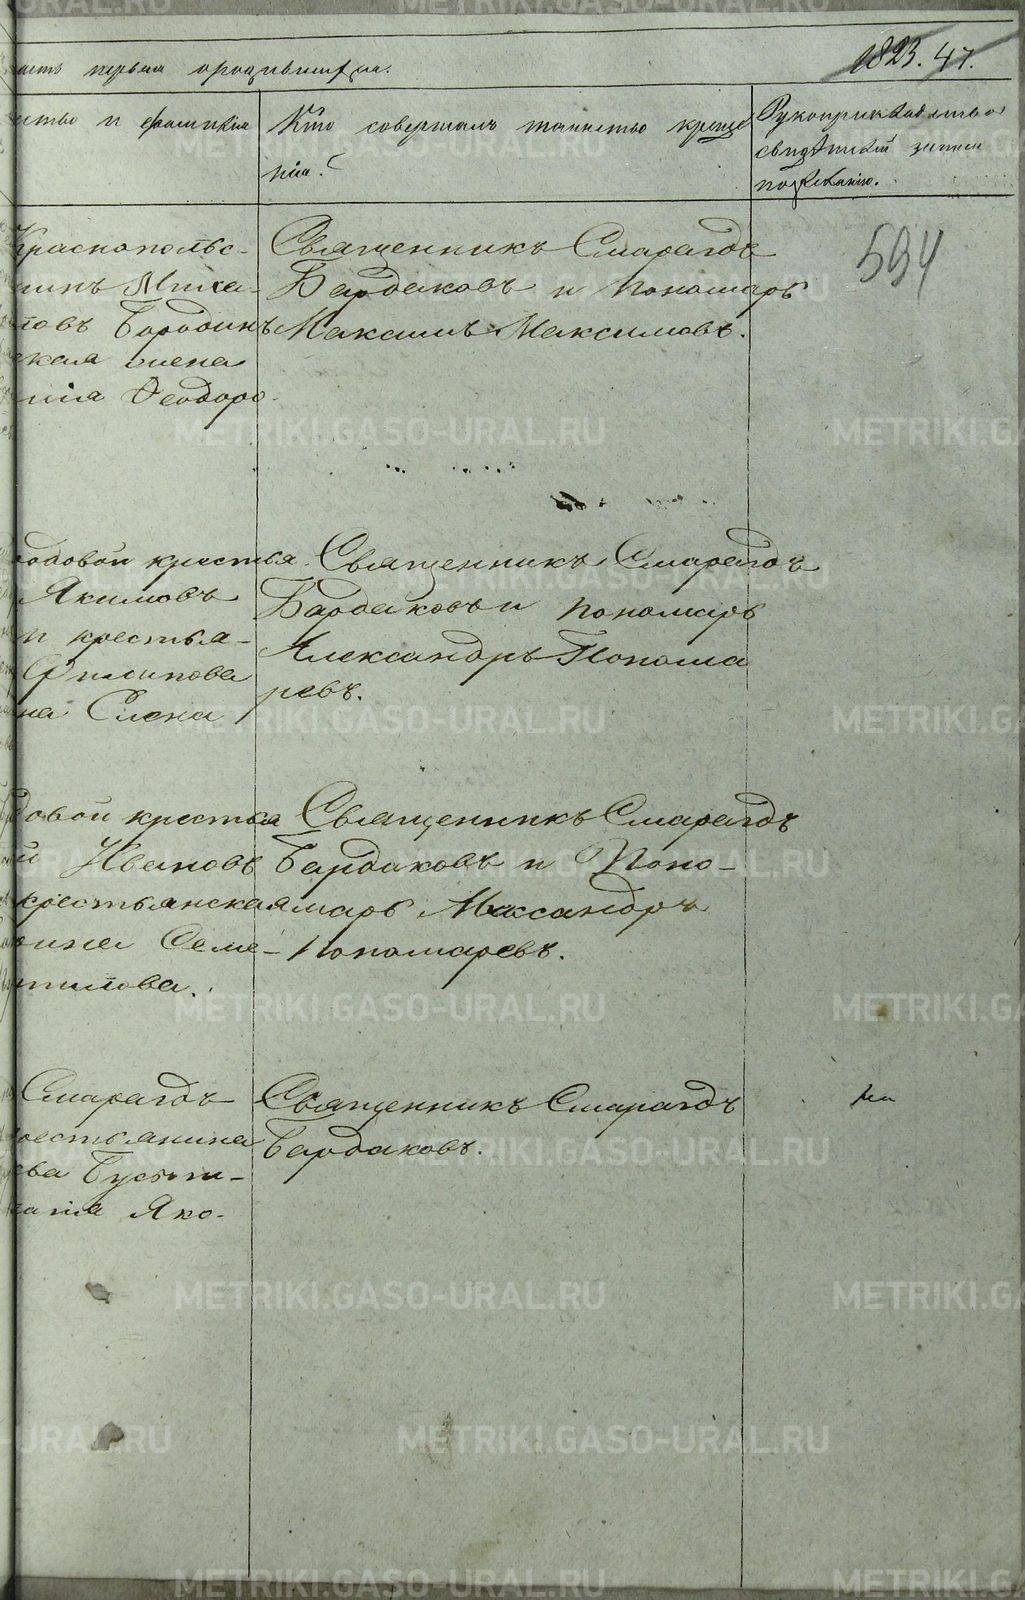 1823. 47.
асть первая о родившихся.
ство и фамилія
Кто совершалъ таинство креще
нія?
Рукоприкладство
свидѣтелей записи
по желанію.
594
Краснопольс-
нинъ Миха-
ловъ Бородинъ
ская жена
нія Ѳеодоро-
Священникъ Смарагдъ
Бардаковъ и пономарь
Максимъ Максимовъ.
одовой крестья
Якимовъ
и крестья-
Филипова
на Елена
Священникъ Смарагдъ
Бардаковъ и пономарь
Александръ Понома
ревъ.
довой крестья
й Ивановъ
крестьянская
рина Семе-
нтилова.
Священникъ Смарагдъ
Бардаковъ и Поно-
марь Алксандръ
Пономаревъ.
Смарагдъ
рестьянина
ева
анія Яко-
Священникъ Смарагдъ
Бардаковъ.
METRIKI.GASO-URAL.RU